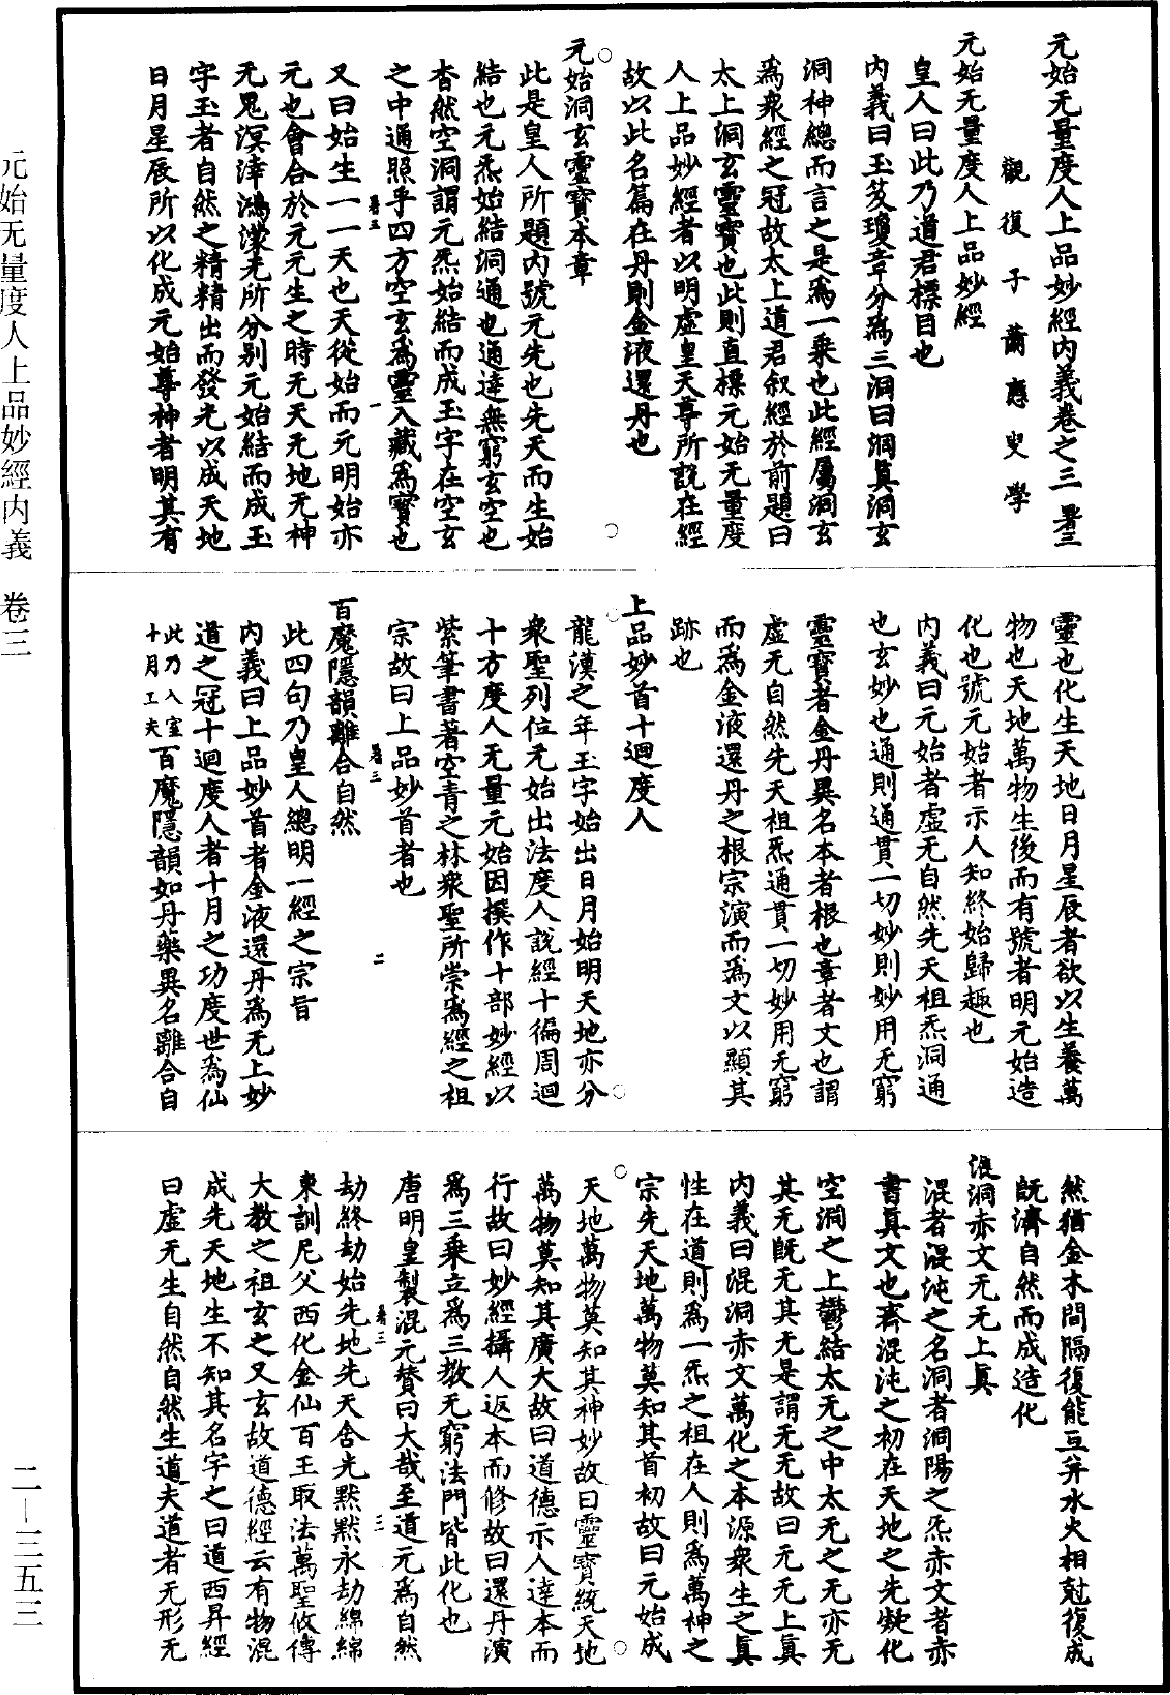 元始无量度人上品妙經內義卷之三 暑三
觀復子蕭應叟學
元始无量度人上品妙經
皇人曰此乃道君標目也
內義曰玉芨瓊章分為三洞曰洞真洞玄
洞神總而言之是為一乘也此經屬洞玄
為衆經之冠故太上道君叙經於前題曰
太上洞玄靈寶也此則直標元始无量度
人上品妙經者以明虛皇天尊所說在經
故以此名篇在丹則金液還丹也
元始洞玄靈寶本章
此是皇人所題內號元先也先天而生始
結也元炁始結洞通也通達無窮玄空也
杳然空洞謂元炁始結而成玉字在空玄
之中通照乎四方空玄為靈入藏為寶也
暑三 一
又曰始生一一天也天從始而元明始亦
元也會合於元元生之時无天无地无神
无鬼溟涬鴻濛无所分别元始結而成玉
字玉者自然之精精出而發光以成天地
日月星辰所以化成元始尊神者明其有
靈也化生天地日月星辰者欲以生養萬
物也天地萬物生後而有號者明元始造
化也號元始者示人知終始歸趣也
內義曰元始者虛无自然先天祖炁洞通
也玄妙也通則通貫一切妙則妙用无窮
靈寶者金丹異名本者根也章者文也謂
虛无自然先天祖炁通貫一切妙用无窮
而為金液還丹之根宗演而為文以顯其
跡也
上品妙首十迴度人
龍漢之年玉字始出日月始明天地亦分
衆聖列位元始出法度人說經十徧周迴
十方度人无量元始因撰作十部妙經以
紫筆書著空青之林衆聖所崇為經之祖
宗故曰上品妙首者也
暑三 二
百魔隱韻離合自然
此四句乃皇人總明一經之宗旨
內義曰上品妙首者金液還丹為无上妙
道之冠十迴度人者十月之功度世為仙
此乃入室十月工夫百魔隱韻如丹藥異名離合自
然猶金木間隔復能互并水火相尅復成
既濟自然而成造化
混洞赤文无无上真
混者混沌之名洞者洞陽之炁赤文者赤
書真文也齊混沌之初在天地之先凝化
空洞之上鬱結太无之中太无之无亦无
其无既无其无是謂无无故曰无无上真
內義曰混洞赤文萬化之本源衆生之真
性在道則為一炁之祖在人則為萬神之
宗先天地萬物莫知其首初故曰元始成
天地萬物莫知其神妙故曰靈寶統天地
萬物莫知其廣大故曰道德示人達本而
行故曰妙經攝人返本而修故曰還丹演
為三乘立為三教无窮法門皆此化也
唐明皇製混元贊曰大哉至道元為自然
暑三 三
劫終劫始先地先天含光默默永劫綿綿
東訓尼父西化金仙百王取法萬聖攸傳
大教之祖玄之又玄故道德經云有物混
成先天地生不知其名字之曰道西昇經
曰虛无生自然自然生道夫道者无形无
元始无量度人上品妙經內義 卷三
二—三五三